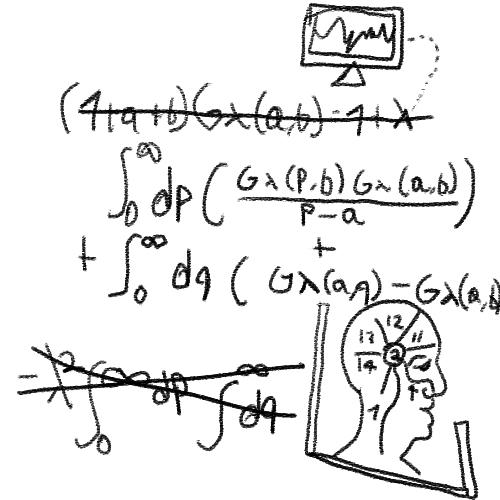 (1+a+b)Gλ(a,b)=1+λ
∫₀^∞ dp (Gλ(p,b) Gλ(a,b) / p-a)
+ ∫₀^∞ dq ( Gλ(a,q) - Gλ(a,b
+
-λ² ∫₀^∞ dp ∫^∞ dq
13 12 11
14 2
1